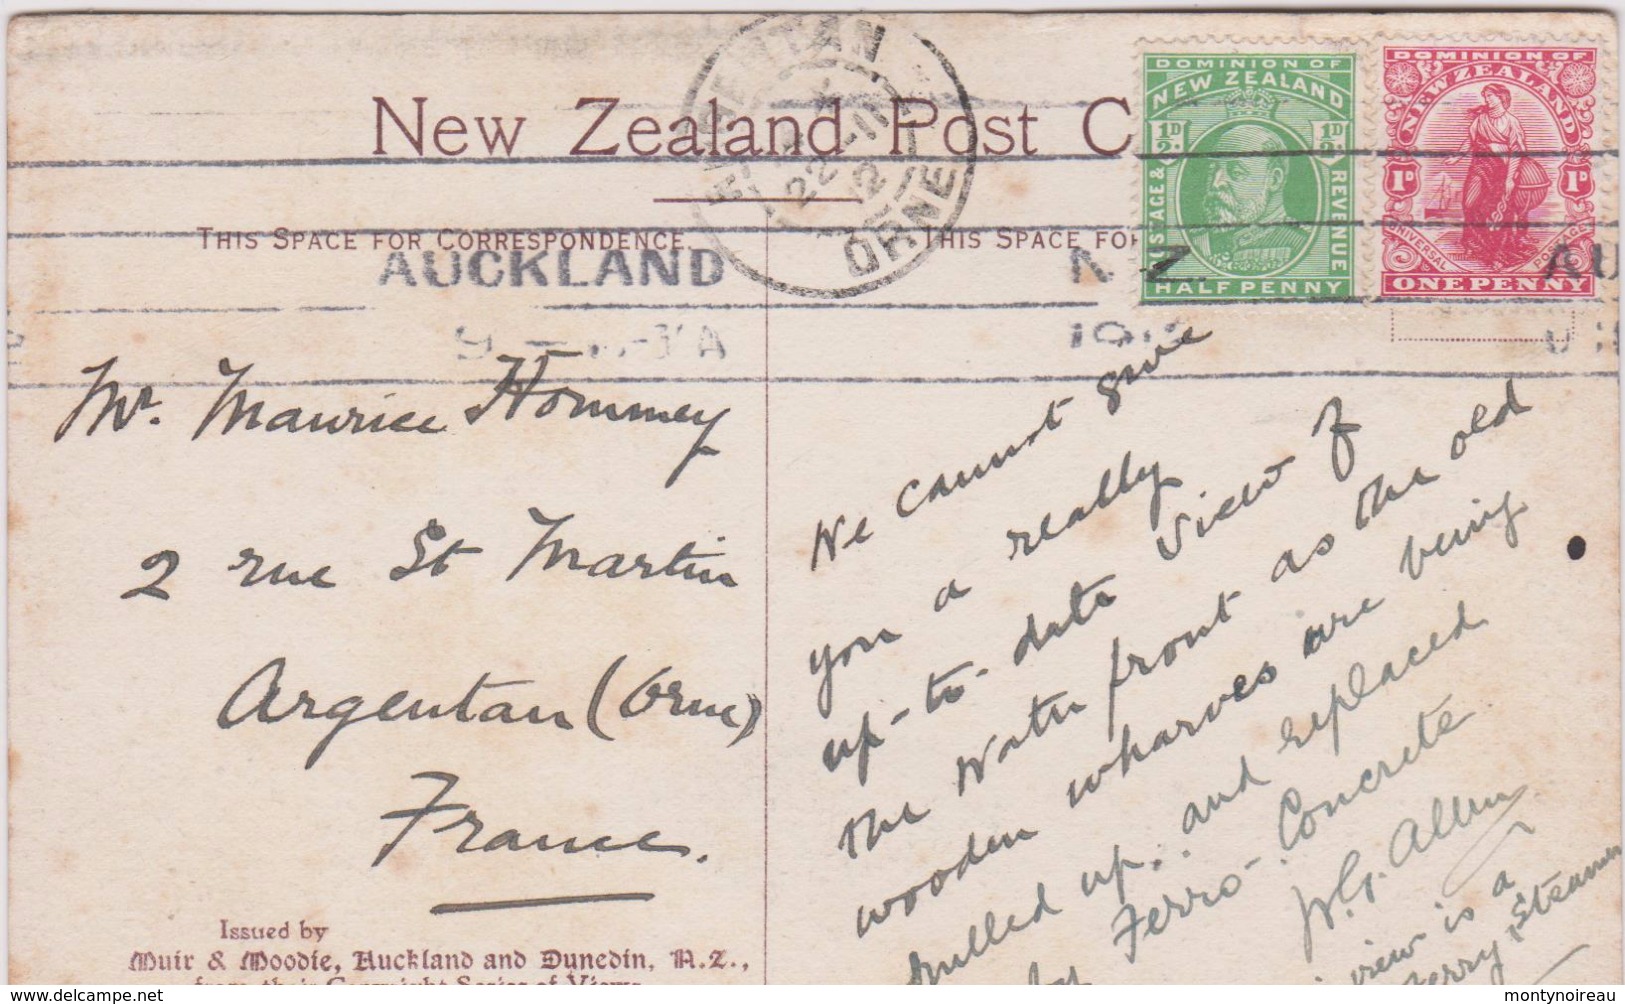 New Zealand Post C
THIS SPACE FOR CORRESPONDENCE.
THIS SPACE FOR
ARGENTAN
22
ORNE
AUCKLAND
N Z
AU
DOMINION OF
NEW ZEALAND
½D.
½D.
POSTAGE & REVENUE
HALF PENNY
DOMINION OF
NEW ZEALAND
1D
1D
UNIVERSAL POSTAGE
ONE PENNY
Mr. Maurice Hommey
2 rue St Martin
Argentan (Orne)
France.
We cannot give
you a really
up-to-date view of
the water front as the old
wooden wharves are being
pulled up, and replaced
by Ferro-Concrete
W.G. Allen
view is a
ferry steamer
Issued by
Muir & Moodie, Auckland and Dunedin, N.Z.,
from their Copyright Series of Views
https://www.delcampe.net
montynoireau